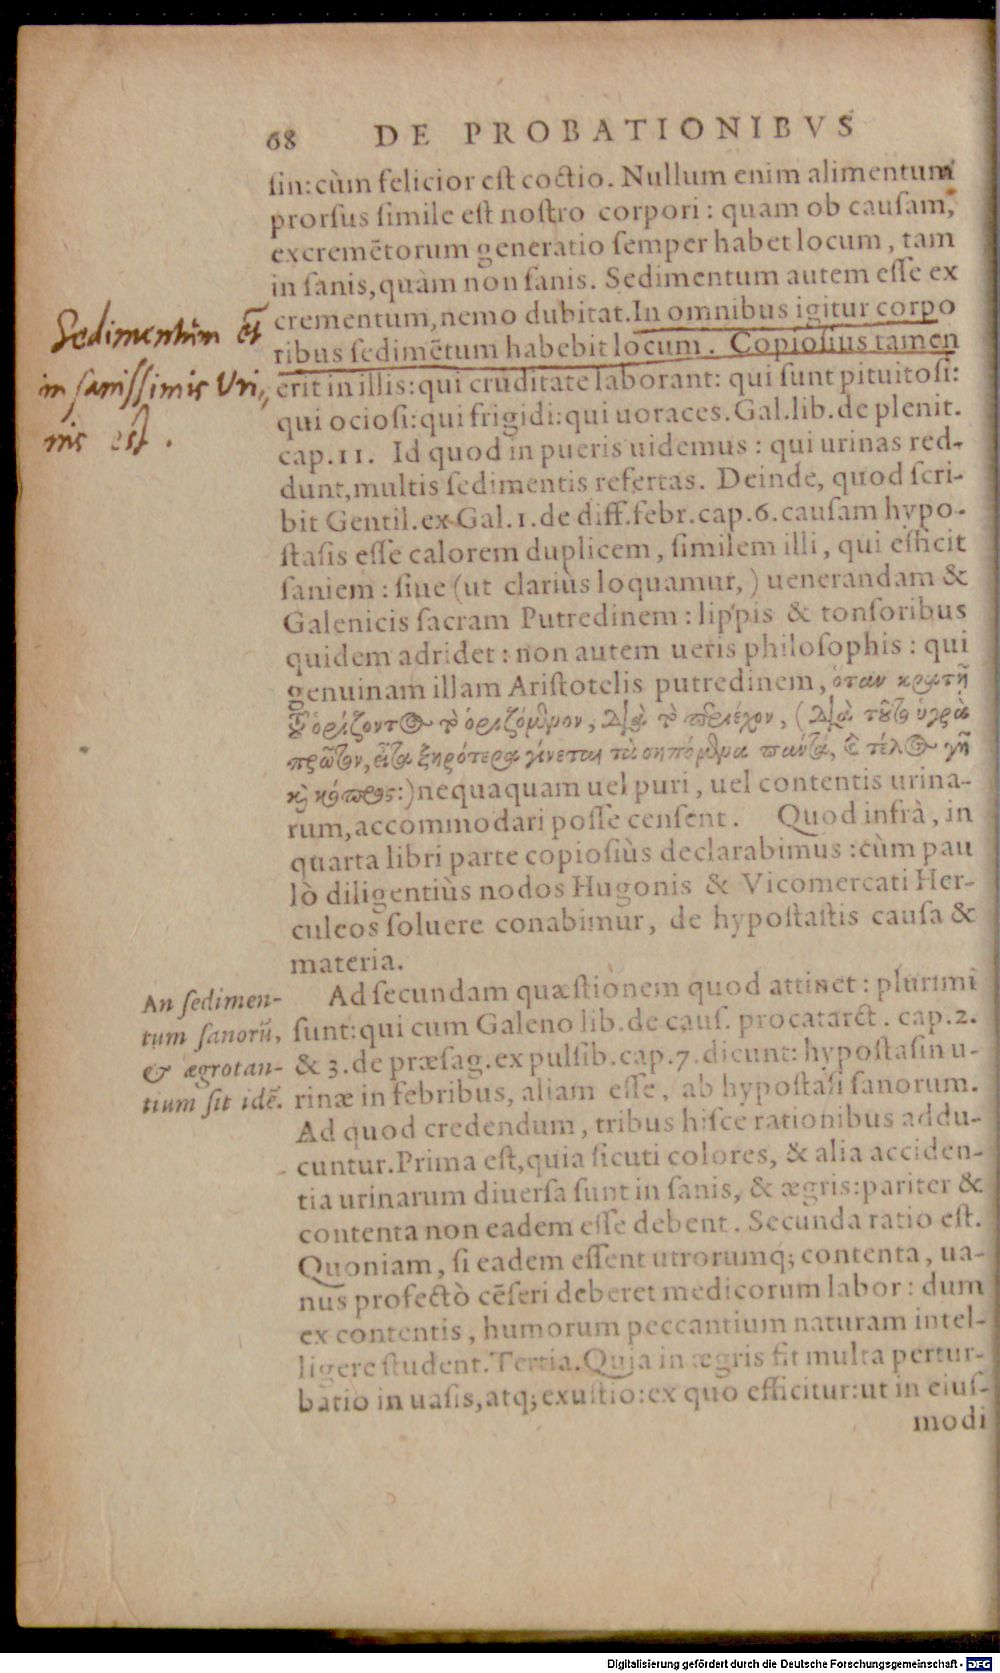 68 DE PROBATIONIBVS
ſin: cùm felicior eſt coctio. Nullum enim alimentum
prorſus ſimile eſt noſtro corpori: quam ob cauſam,
excremẽtorum generatio ſemper habet locum, tam
in ſanis, quàm non ſanis. Sedimentum autem eſſe ex
crementum, nemo dubitat. In omnibus igitur corpo
ribus ſedimẽtum habebit locum. Copioſius tamen
erit in illis: qui cruditate laborant: qui ſunt pituitoſi:
qui ocioſi: qui frigidi: qui uoraces. Gal. lib. de plenit.
cap. 11. Id quod in pueris uidemus: qui urinas red-
dunt, multis ſedimentis refertas. Deinde, quod ſcri-
bit Gentil. ex Gal. 1. de diff. febr. cap. 6. cauſam hypo-
ſtaſis eſſe calorem duplicem, ſimilem illi, qui efficit
ſaniem: ſiue (ut clariùs loquamur,) uenerandam &
Galenicis ſacram Putredinem: lippis & tonſoribus
quidem adridet: non autem ueris philoſophis: qui
genuinam illam Ariſtotelis putredinem, ὅταν κρατῆ
τοῦ ὁρίζοντος τὸ ὁριζόμενον, διὰ τὸ περιέχον, (διὰ τοῦτο ὑγρὰ
πρῶτον, εἶτα ξηρότερα γίνεται τὰ σηπόμενα πάντα, & τέλος γῆ
καὶ κόπρος:) nequaquam uel puri, uel contentis urina-
rum, accommodari poſſe cenſent. Quod infrà, in
quarta libri parte copioſiùs declarabimus: cùm pau
lò diligentiùs nodos Hugonis & Vicomercati Her-
culeos ſoluere conabimur, de hypoſtaſtis cauſa &
materia.
Ad ſecundam quæſtionem quod attinet: plurimi
ſunt: qui cum Galeno lib. de cauſ. procatarct. cap. 2.
& 3. de præſag. ex pulſib. cap. 7. dicunt: hypoſtaſin u-
rinæ in febribus, aliam eſſe, ab hypoſtaſi ſanorum.
Ad quod credendum, tribus hiſce rationibus addu-
cuntur. Prima eſt, quia ſicuti colores, & alia acciden-
tia urinarum diuerſa ſunt in ſanis, & ægris: pariter &
contenta non eadem eſſe debent. Secunda ratio eſt.
Quoniam, ſi eadem eſſent utrorumq; contenta, ua-
nus profectò cẽſeri deberet medicorum labor: dum
ex contentis, humorum peccantium naturam intel-
ligere ſtudent. Tertia. Quia in ægris fit multa pertur-
batio in uaſis, atq; exuſtio: ex quo efficitur: ut in eiuſ-
modi
Sedimentum et
in sanissimis Vri,,
nis est.
An ſedimen-
tum ſanorũ,
& ægrotan-
tium ſit idẽ.
Digitalisierung gefördert durch die Deutsche Forschungsgemeinschaft - DFG